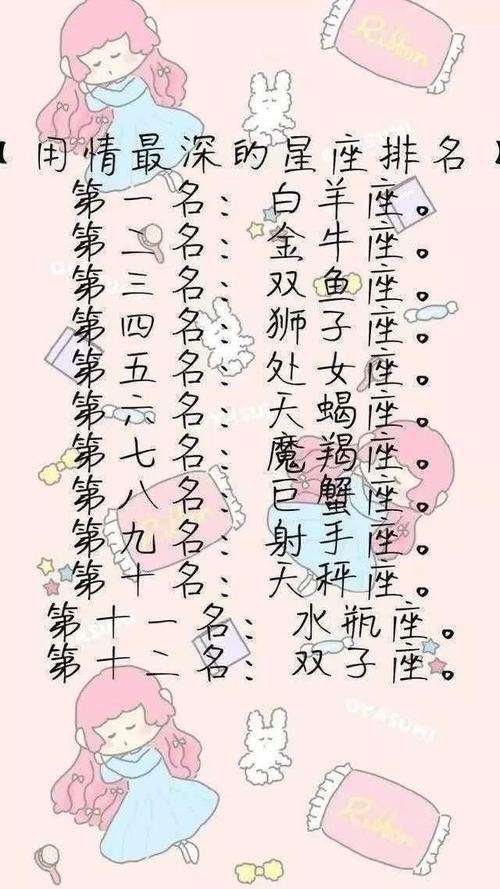 Ribbon
【用情最深的星座排名】
第一名：白羊座。
第二名：金牛座。
第三名：双鱼座。
第四名：狮子座。
第五名：处女座。
第六名：天蝎座。
第七名：魔羯座。
第八名：巨蟹座。
第九名：射手座。
第十名：天秤座。
第十一名：水瓶座。
第十二名：双子座。
OYASUMI
Ribbon